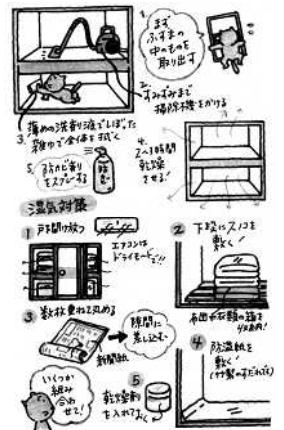 1.
まず
ふすまの
中のものを
取り出す
2.
すみずみまで
掃除機をかける
3. 薄めの洗剤液でしぼった
雑巾で全体を拭く
4.
2〜3時間
乾燥
させる!
5. 防カビ剤
をスプレーする
防カビ
湿気対策
1 戸は開け放つ
エアコンは
ドライモードで!!
2 下段にスノコを
敷く!
布団や衣類の箱を
3 数枚重ねて丸める
新聞紙
隙間に
差し込む
4 防湿紙を
敷く!
(竹製のすだれでも)
5 乾燥剤
を入れておく
いくつか
組み
合わ
せて!